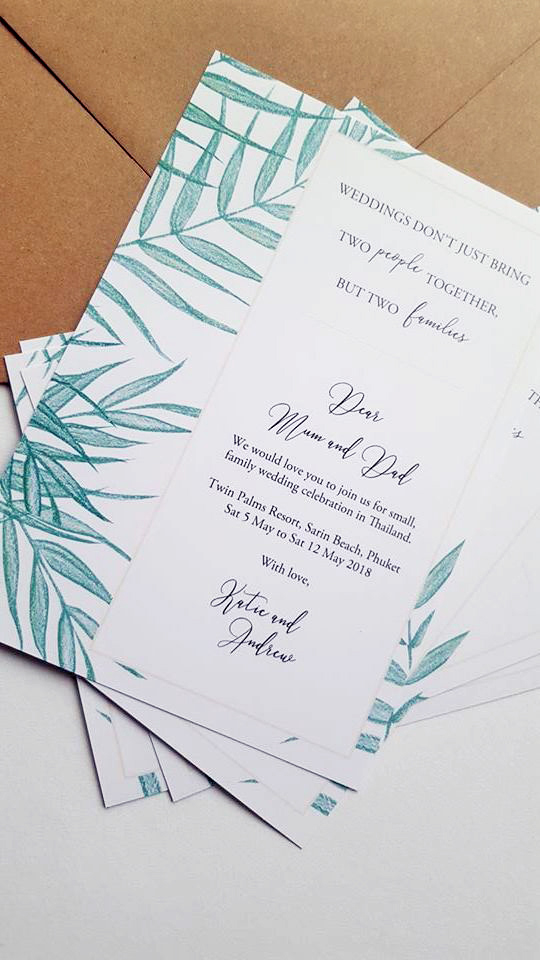 WEDDINGS DON'T JUST BRING
TWO people TOGETHER,
BUT TWO families
Dear
Mum and Dad
We would love you to join us for small,
family wedding celebration in Thailand.
Twin Palms Resort, Sarin Beach, Phuket
Sat 5 May to Sat 12 May 2018
With love,
Katie and
Andrew